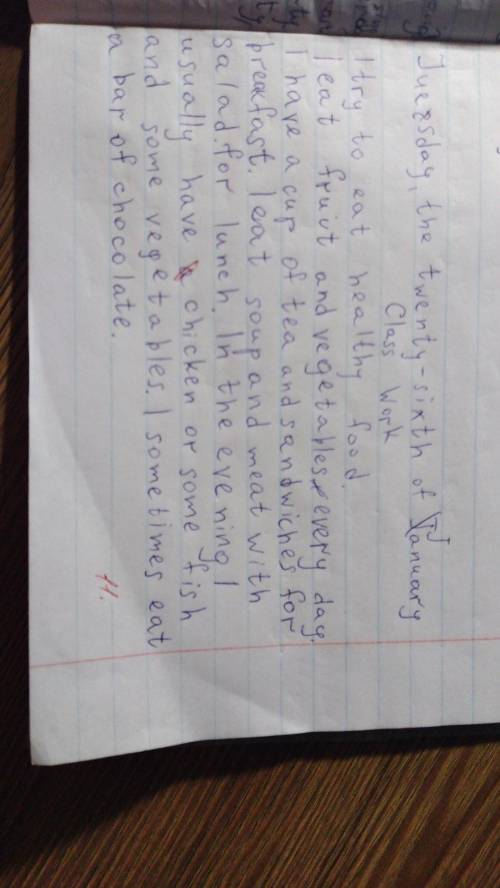 Tuesday, the twenty-sixth of January
Class Work
I try to eat healthy food.
I eat fruit and vegetables every day.
I have a cup of tea and sandwiches for
breakfast. I eat soup and meat with
salad for lunch. In the evening I
usually have chicken or some fish
and some vegetables. I sometimes eat
a bar of chocolate.
11.